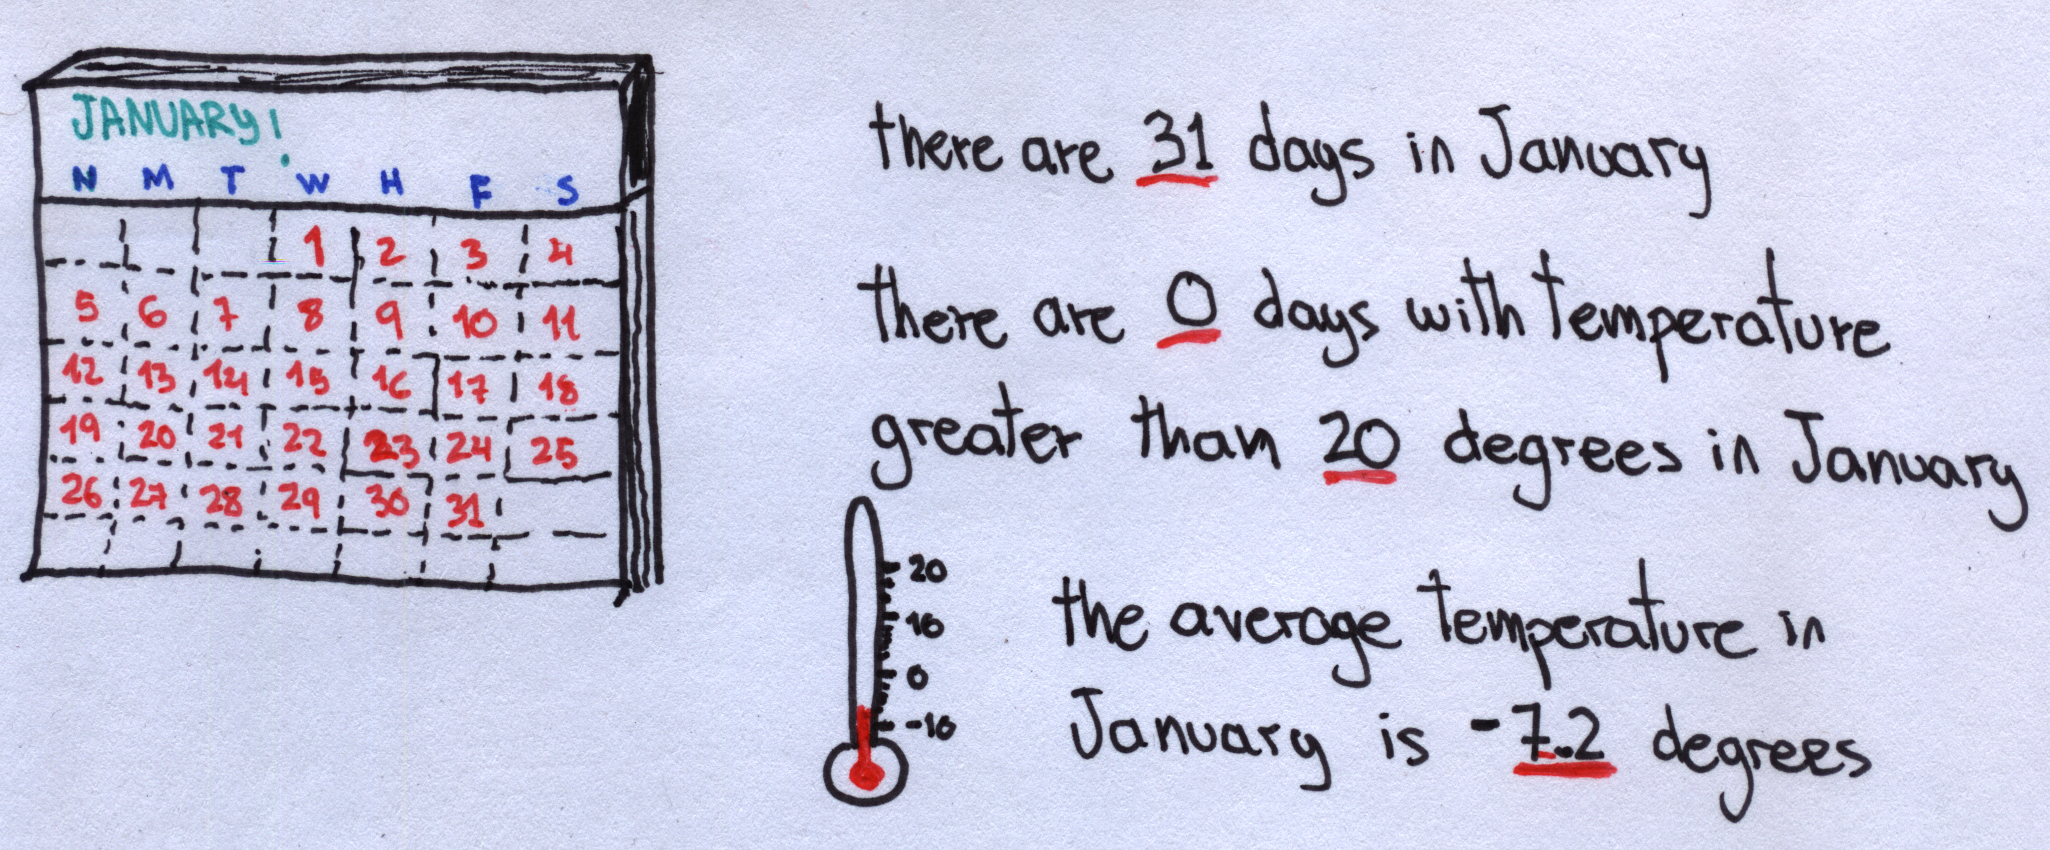 JANUARY!
N M T W H F S
1 2 3 4
5 6 7 8 9 10 11
12 13 14 15 16 17 18
19 20 21 22 23 24 25
26 27 28 29 30 31
there are 31 days in January
there are 0 days with temperature
greater than 20 degrees in January
20
10
0
-10
the average temperature in
January is -7.2 degrees